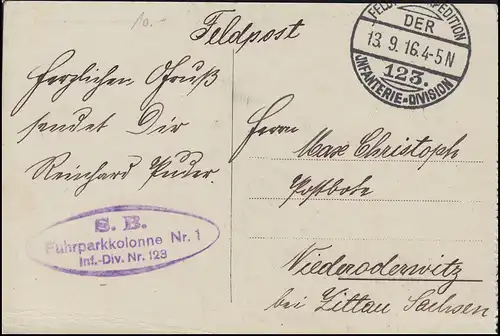 10.-
Feldpost
FELD EXPEDITION
DER
13.9.16.4-5N
123.
INFANTERIE-DIVISION
Herzlichen Gruß
sendet Dir
Reinhard Puder.
S. B.
Fuhrparkkolonne Nr. 1
Inf.-Div. Nr. 123
Herrn
Max Christoph
Postbote
Niederoderwitz
bei Zittau Sachsen